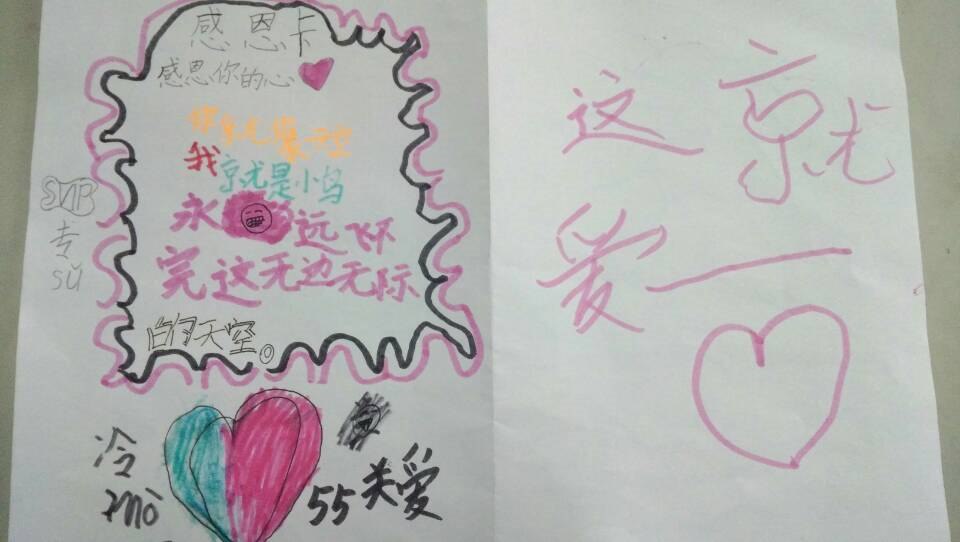 感恩卡
感恩你的心
你就是像天空
我就是小鸟
永远飞不
完这无边无际
的天空。
SVIB
专
sǔ
冷
mò
55关爱
这就
爱一